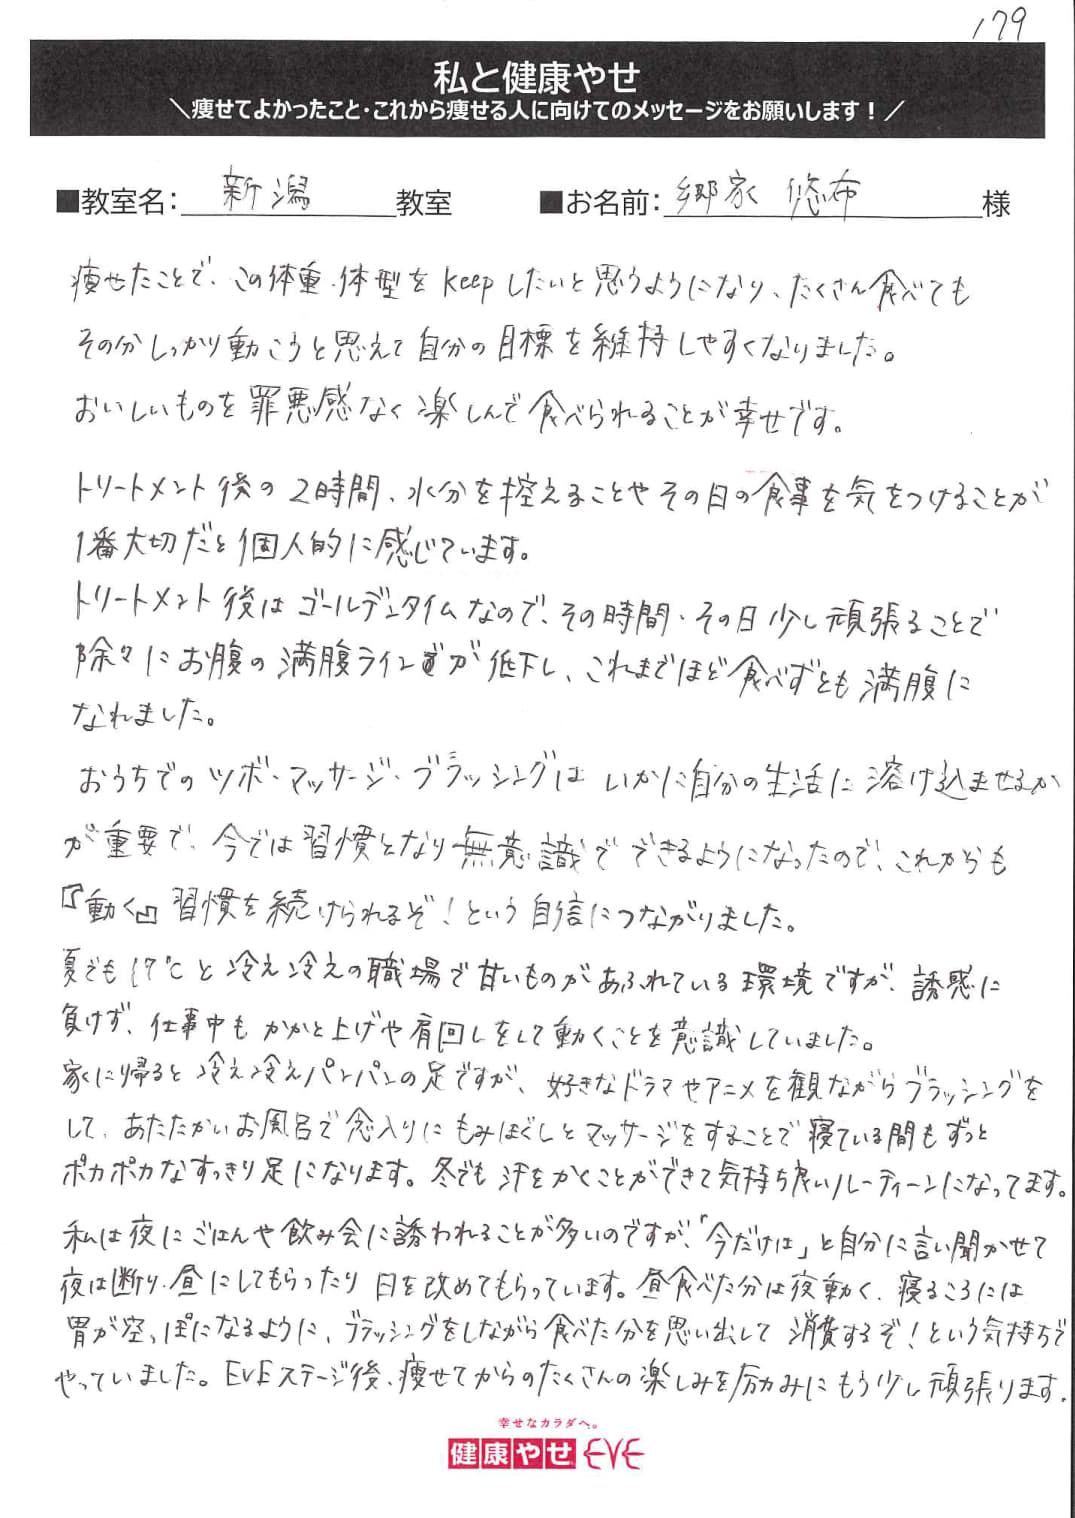 179
私と健康やせ
＼痩せてよかったこと・これから痩せる人に向けてのメッセージをお願いします！／
■教室名: 新潟 教室 ■お名前: 郷家 悠布 様
痩せたことで、この体重・体型をkeepしたいと思うようになり、たくさん食べても
その分しっかり動こうと思えて自分の目標を維持しやすくなりました。
おいしいものを罪悪感なく楽しんで食べられることが幸せです。
トリートメント後の2時間、水分を控えることやその日の食事を気をつけることが
1番大切だと個人的に感じています。
トリートメント後はゴールデンタイムなので、その時間・その日少し頑張ることで
除々にお腹の満腹ラインが低下し、これまでほど食べずとも満腹に
なれました。
おうちでのツボ・マッサージ・ブラッシングはいかに自分の生活に溶け込ませるか
が重要で、今では習慣となり無意識でできるようになったので、これからも
『動く』習慣を続けられるぞ！という自信につながりました。
夏でも17℃と冷え冷えの職場で甘いものがあふれている環境ですが、誘惑に
負けず、仕事中もかかと上げや肩回しをして動くことを意識していました。
家に帰ると冷え冷えパンパンの足ですが、好きなドラマやアニメを観ながらブラッシングを
して、あたたかいお風呂で念入りにもみほぐしとマッサージをすることで寝ている間もずっと
ポカポカなすっきり足になります。冬でも汗をかくことができて気持ち良いルーティーンになってます。
私は夜にごはんや飲み会に誘われることが多いのですが、「今だけは」と自分に言い聞かせて
夜は断り、昼にしてもらったり日を改めてもらっています。昼食べた分は夜動く、寝るころには
胃が空っぽになるように、ブラッシングをしながら食べた分を思い出して消費するぞ！という気持ちで
やっていました。EVEステージ後、痩せてからのたくさんの楽しみを励みにもう少し頑張ります。
幸せなカラダへ。
健康やせ EVE